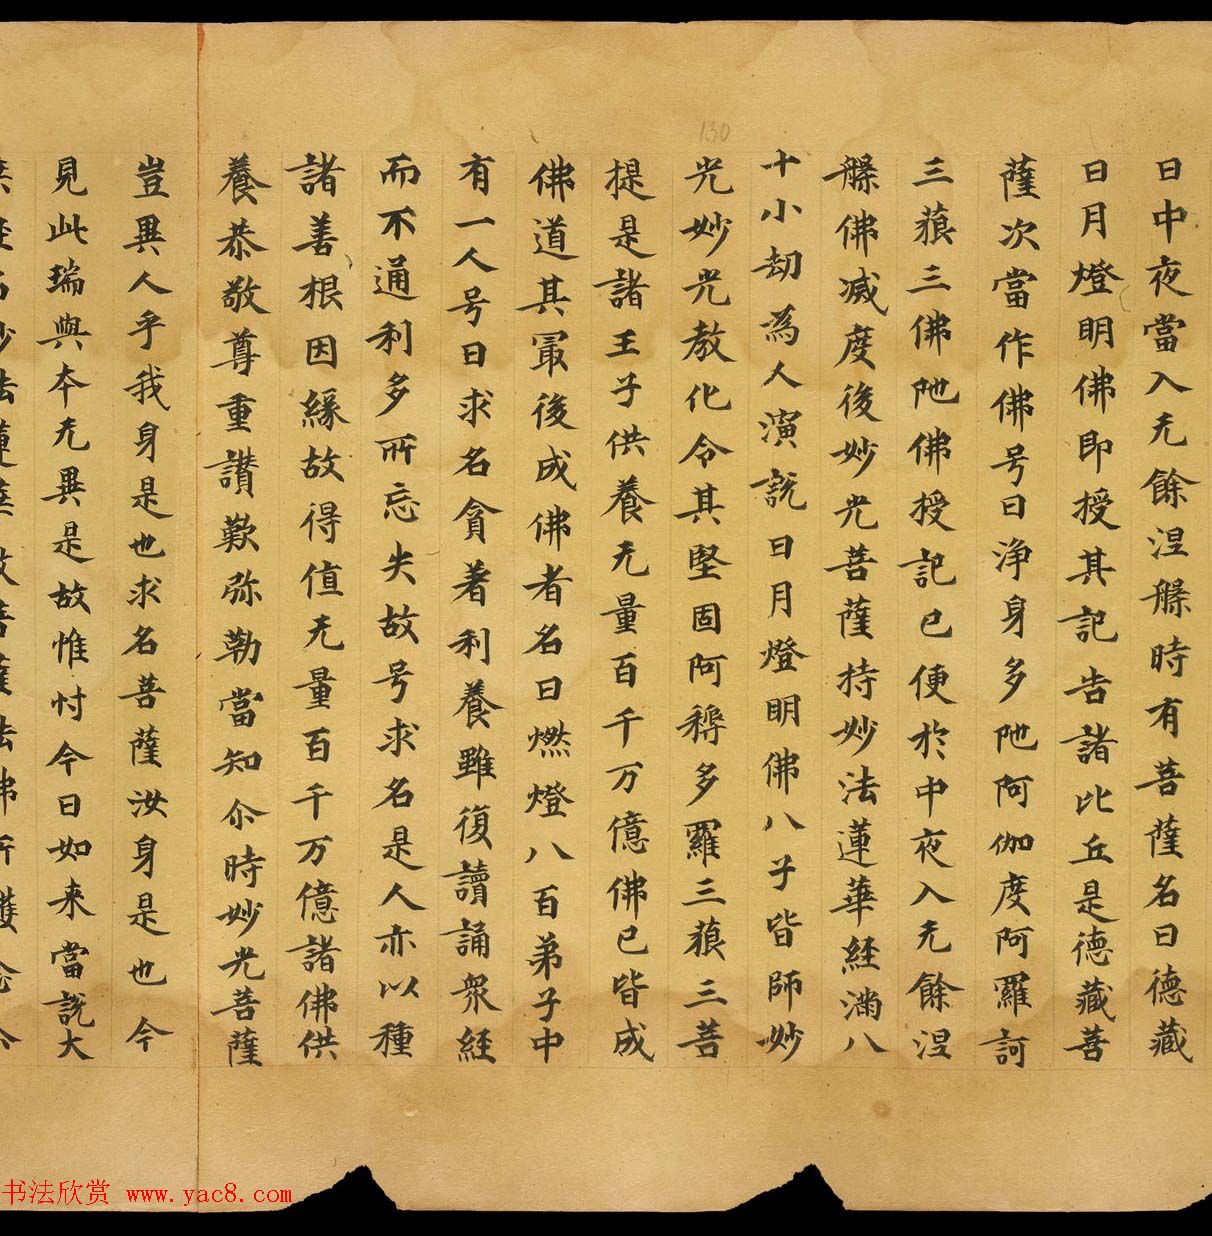 日中夜當入无餘涅槃時有菩薩名曰德藏
日月燈明佛即授其記告諸比丘是德藏菩
薩次當作佛号曰淨身多陁阿伽度阿羅訶
三藐三佛陁佛授記已便於中夜入无餘涅
槃佛滅度後妙光菩薩持妙法蓮華經滿八
十小劫為人演說日月燈明佛八子皆師妙
光妙光教化令其堅固阿耨多羅三藐三菩
提是諸王子供養无量百千万億佛已皆成
佛道其冣後成佛者名曰燃燈八百弟子中
有一人号曰求名貪著利養雖復讀誦衆經
而不通利多所忘失故号求名是人亦以種
諸善根因緣故得值无量百千万億諸佛供
養恭敬尊重讚歎弥勒當知尒時妙光菩薩
豈異人乎我身是也求名菩薩汝身是也今
見此瑞與本无異是故惟忖今日如来當說大
130
书法欣赏 www.yac8.com